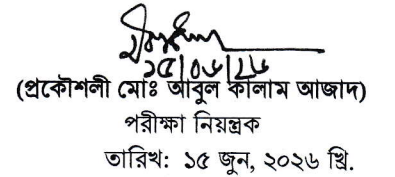 ১৫/০৬/২৬
(প্রকৌশলী মোঃ আবুল কালাম আজাদ)
পরীক্ষা নিয়ন্ত্রক
তারিখ: ১৫ জুন, ২০২৬ খ্রি.